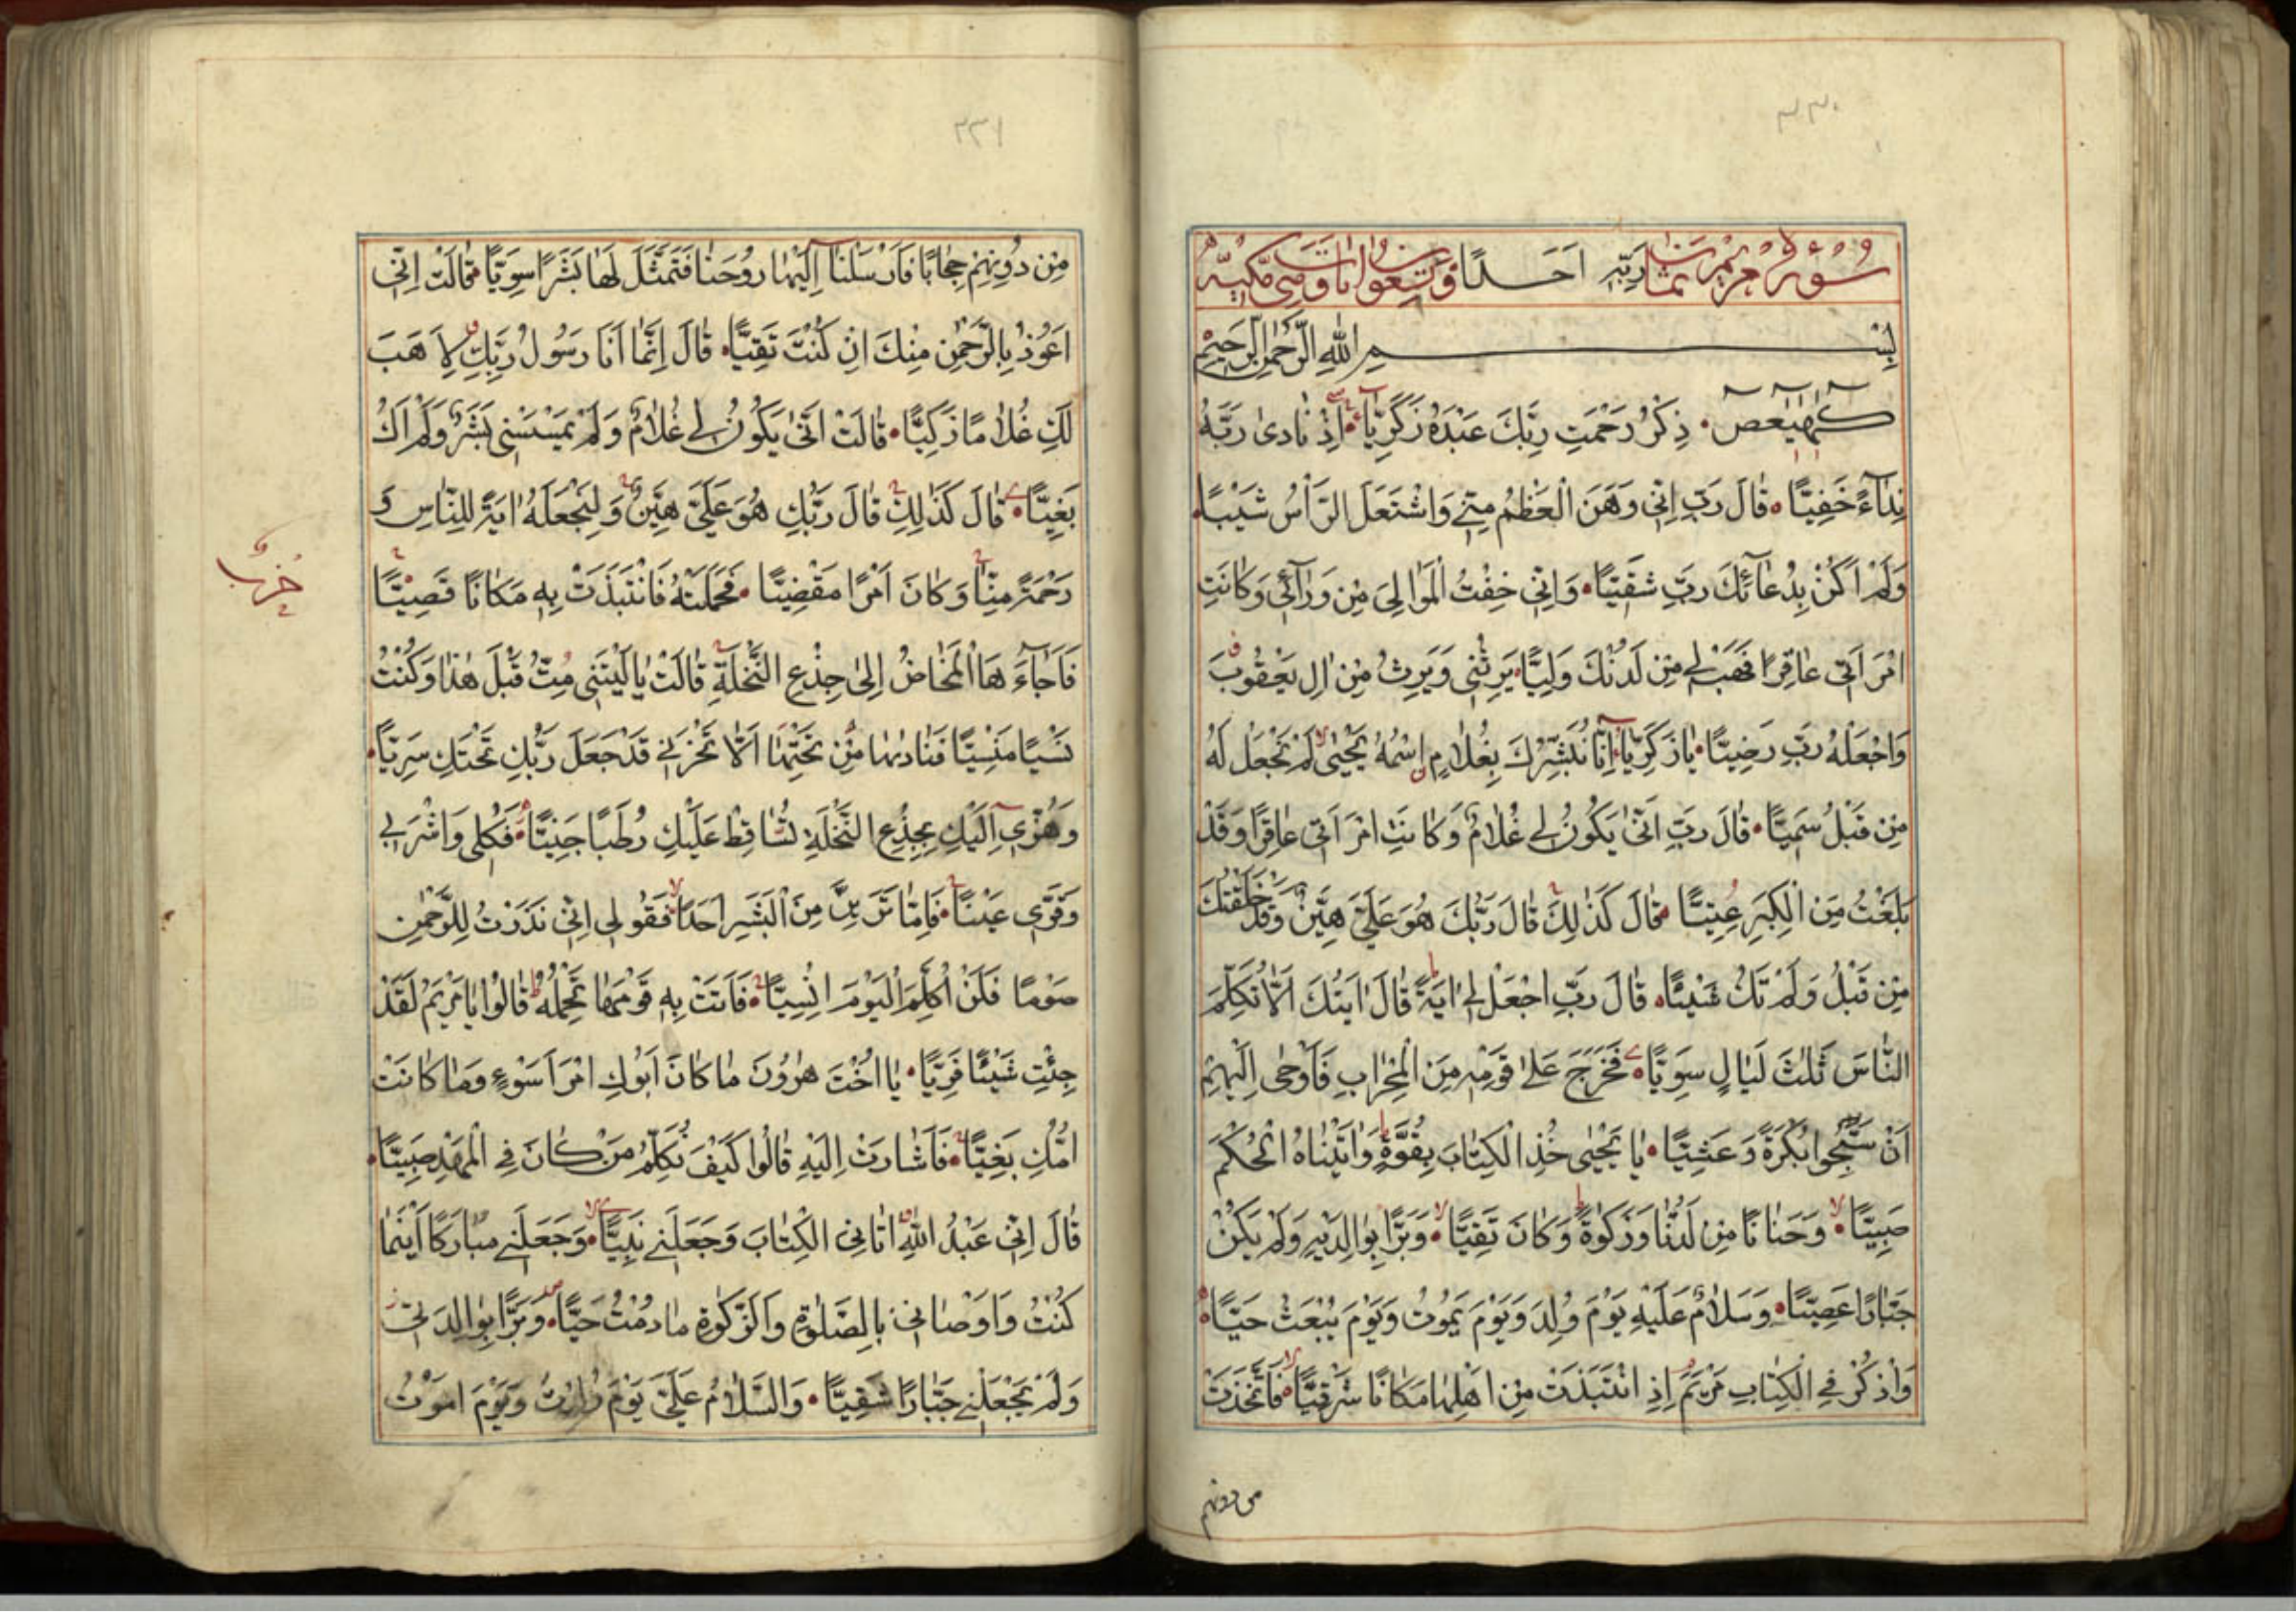 ٣٣٠
سورة مريم ثمان ربه احدا وتسعون ايات وهى مكية
بِسْمِ اللهِ الرَّحْمٰنِ الرَّحِيمِ
كٓهٰيٰعٓصٓ ذِكْرُ رَحْمَتِ رَبِّكَ عَبْدَهُ زَكَرِيَّآ اِذْ نَادىٰ رَبَّهُ
نِدَآءً خَفِيًّا قَالَ رَبِّ اِنّٖى وَهَنَ الْعَظْمُ مِنّٖى وَاشْتَعَلَ الرَّاْسُ شَيْبًا
وَلَمْ اَكُنْ بِدُعَآئِكَ رَبِّ شَقِيًّا وَاِنّٖى خِفْتُ الْمَوَالِىَ مِنْ وَرَآئٖى وَكَانَتِ
امْرَاَتٖى عَاقِرًا فَهَبْ لٖى مِنْ لَدُنْكَ وَلِيًّا يَرِثُنٖى وَيَرِثُ مِنْ اٰلِ يَعْقُوبَ
وَاجْعَلْهُ رَبِّ رَضِيًّا يَا زَكَرِيَّآ اِنَّا نُبَشِّرُكَ بِغُلَامٍ اسْمُهُ يَحْيٰى لَمْ نَجْعَلْ لَهُ
مِنْ قَبْلُ سَمِيًّا قَالَ رَبِّ اَنّٰى يَكُونُ لٖى غُلَامٌ وَكَانَتِ امْرَاَتٖى عَاقِرًا وَقَدْ
بَلَغْتُ مِنَ الْكِبَرِ عِتِيًّا قَالَ كَذٰلِكَ قَالَ رَبُّكَ هُوَ عَلَىَّ هَيِّنٌ وَقَدْ خَلَقْتُكَ
مِنْ قَبْلُ وَلَمْ تَكُ شَيْئًا قَالَ رَبِّ اجْعَلْ لٖى اٰيَةً قَالَ اٰيَتُكَ اَلَّا تُكَلِّمَ
النَّاسَ ثَلٰثَ لَيَالٍ سَوِيًّا فَخَرَجَ عَلٰى قَوْمِهٖ مِنَ الْمِحْرَابِ فَاَوْحٰى اِلَيْهِمْ
اَنْ سَبِّحُوا بُكْرَةً وَعَشِيًّا يَا يَحْيٰى خُذِ الْكِتَابَ بِقُوَّةٍ وَاٰتَيْنَاهُ الْحُكْمَ
صَبِيًّا وَحَنَانًا مِنْ لَدُنَّا وَزَكٰوةً وَكَانَ تَقِيًّا وَبَرًّا بِوَالِدَيْهِ وَلَمْ يَكُنْ
جَبَّارًا عَصِيًّا وَسَلَامٌ عَلَيْهِ يَوْمَ وُلِدَ وَيَوْمَ يَمُوتُ وَيَوْمَ يُبْعَثُ حَيًّا
وَاذْكُرْ فِى الْكِتَابِ مَرْيَمَ اِذِ انْتَبَذَتْ مِنْ اَهْلِهَا مَكَانًا شَرْقِيًّا فَاتَّخَذَتْ
من دونهم
٣٣١
مِنْ دُونِهِمْ حِجَابًا فَاَرْسَلْنَآ اِلَيْهَا رُوحَنَا فَتَمَثَّلَ لَهَا بَشَرًا سَوِيًّا قَالَتْ اِنّٖى
اَعُوذُ بِالرَّحْمٰنِ مِنْكَ اِنْ كُنْتَ تَقِيًّا قَالَ اِنَّمَا اَنَا رَسُولُ رَبِّكِ لِاَهَبَ
لَكِ غُلَامًا زَكِيًّا قَالَتْ اَنّٰى يَكُونُ لٖى غُلَامٌ وَلَمْ يَمْسَسْنٖى بَشَرٌ وَلَمْ اَكُ
بَغِيًّا قَالَ كَذٰلِكِ قَالَ رَبُّكِ هُوَ عَلَىَّ هَيِّنٌ وَلِنَجْعَلَهُ اٰيَةً لِلنَّاسِ وَ
رَحْمَةً مِنَّا وَكَانَ اَمْرًا مَقْضِيًّا فَحَمَلَتْهُ فَانْتَبَذَتْ بِهٖ مَكَانًا قَصِيًّا
حزب
فَاَجَآءَهَا الْمَخَاضُ اِلٰى جِذْعِ النَّخْلَةِ قَالَتْ يَا لَيْتَنٖى مِتُّ قَبْلَ هٰذَا وَكُنْتُ
نَسْيًا مَنْسِيًّا فَنَادٰيهَا مِنْ تَحْتِهَا اَلَّا تَحْزَنٖى قَدْ جَعَلَ رَبُّكِ تَحْتَكِ سَرِيًّا
وَهُزّٖٓى اِلَيْكِ بِجِذْعِ النَّخْلَةِ تُسَاقِطْ عَلَيْكِ رُطَبًا جَنِيًّا فَكُلٖى وَاشْرَبٖى
وَقَرّٖى عَيْنًا فَاِمَّا تَرَيِنَّ مِنَ الْبَشَرِ اَحَدًا فَقُولٖى اِنّٖى نَذَرْتُ لِلرَّحْمٰنِ
صَوْمًا فَلَنْ اُكَلِّمَ الْيَوْمَ اِنْسِيًّا فَاَتَتْ بِهٖ قَوْمَهَا تَحْمِلُهُ قَالُوا يَا مَرْيَمُ لَقَدْ
جِئْتِ شَيْئًا فَرِيًّا يَا اُخْتَ هٰرُونَ مَا كَانَ اَبُوكِ امْرَاَ سَوْءٍ وَمَا كَانَتْ
اُمُّكِ بَغِيًّا فَاَشَارَتْ اِلَيْهِ قَالُوا كَيْفَ نُكَلِّمُ مَنْ كَانَ فِى الْمَهْدِ صَبِيًّا
قَالَ اِنّٖى عَبْدُ اللهِ اٰتَانِىَ الْكِتَابَ وَجَعَلَنٖى نَبِيًّا وَجَعَلَنٖى مُبَارَكًا اَيْنَمَا
كُنْتُ وَاَوْصَانٖى بِالصَّلٰوةِ وَالزَّكٰوةِ مَا دُمْتُ حَيًّا وَبَرًّا بِوَالِدَتٖى
وَلَمْ يَجْعَلْنٖى جَبَّارًا شَقِيًّا وَالسَّلَامُ عَلَىَّ يَوْمَ وُلِدْتُ وَيَوْمَ اَمُوتُ